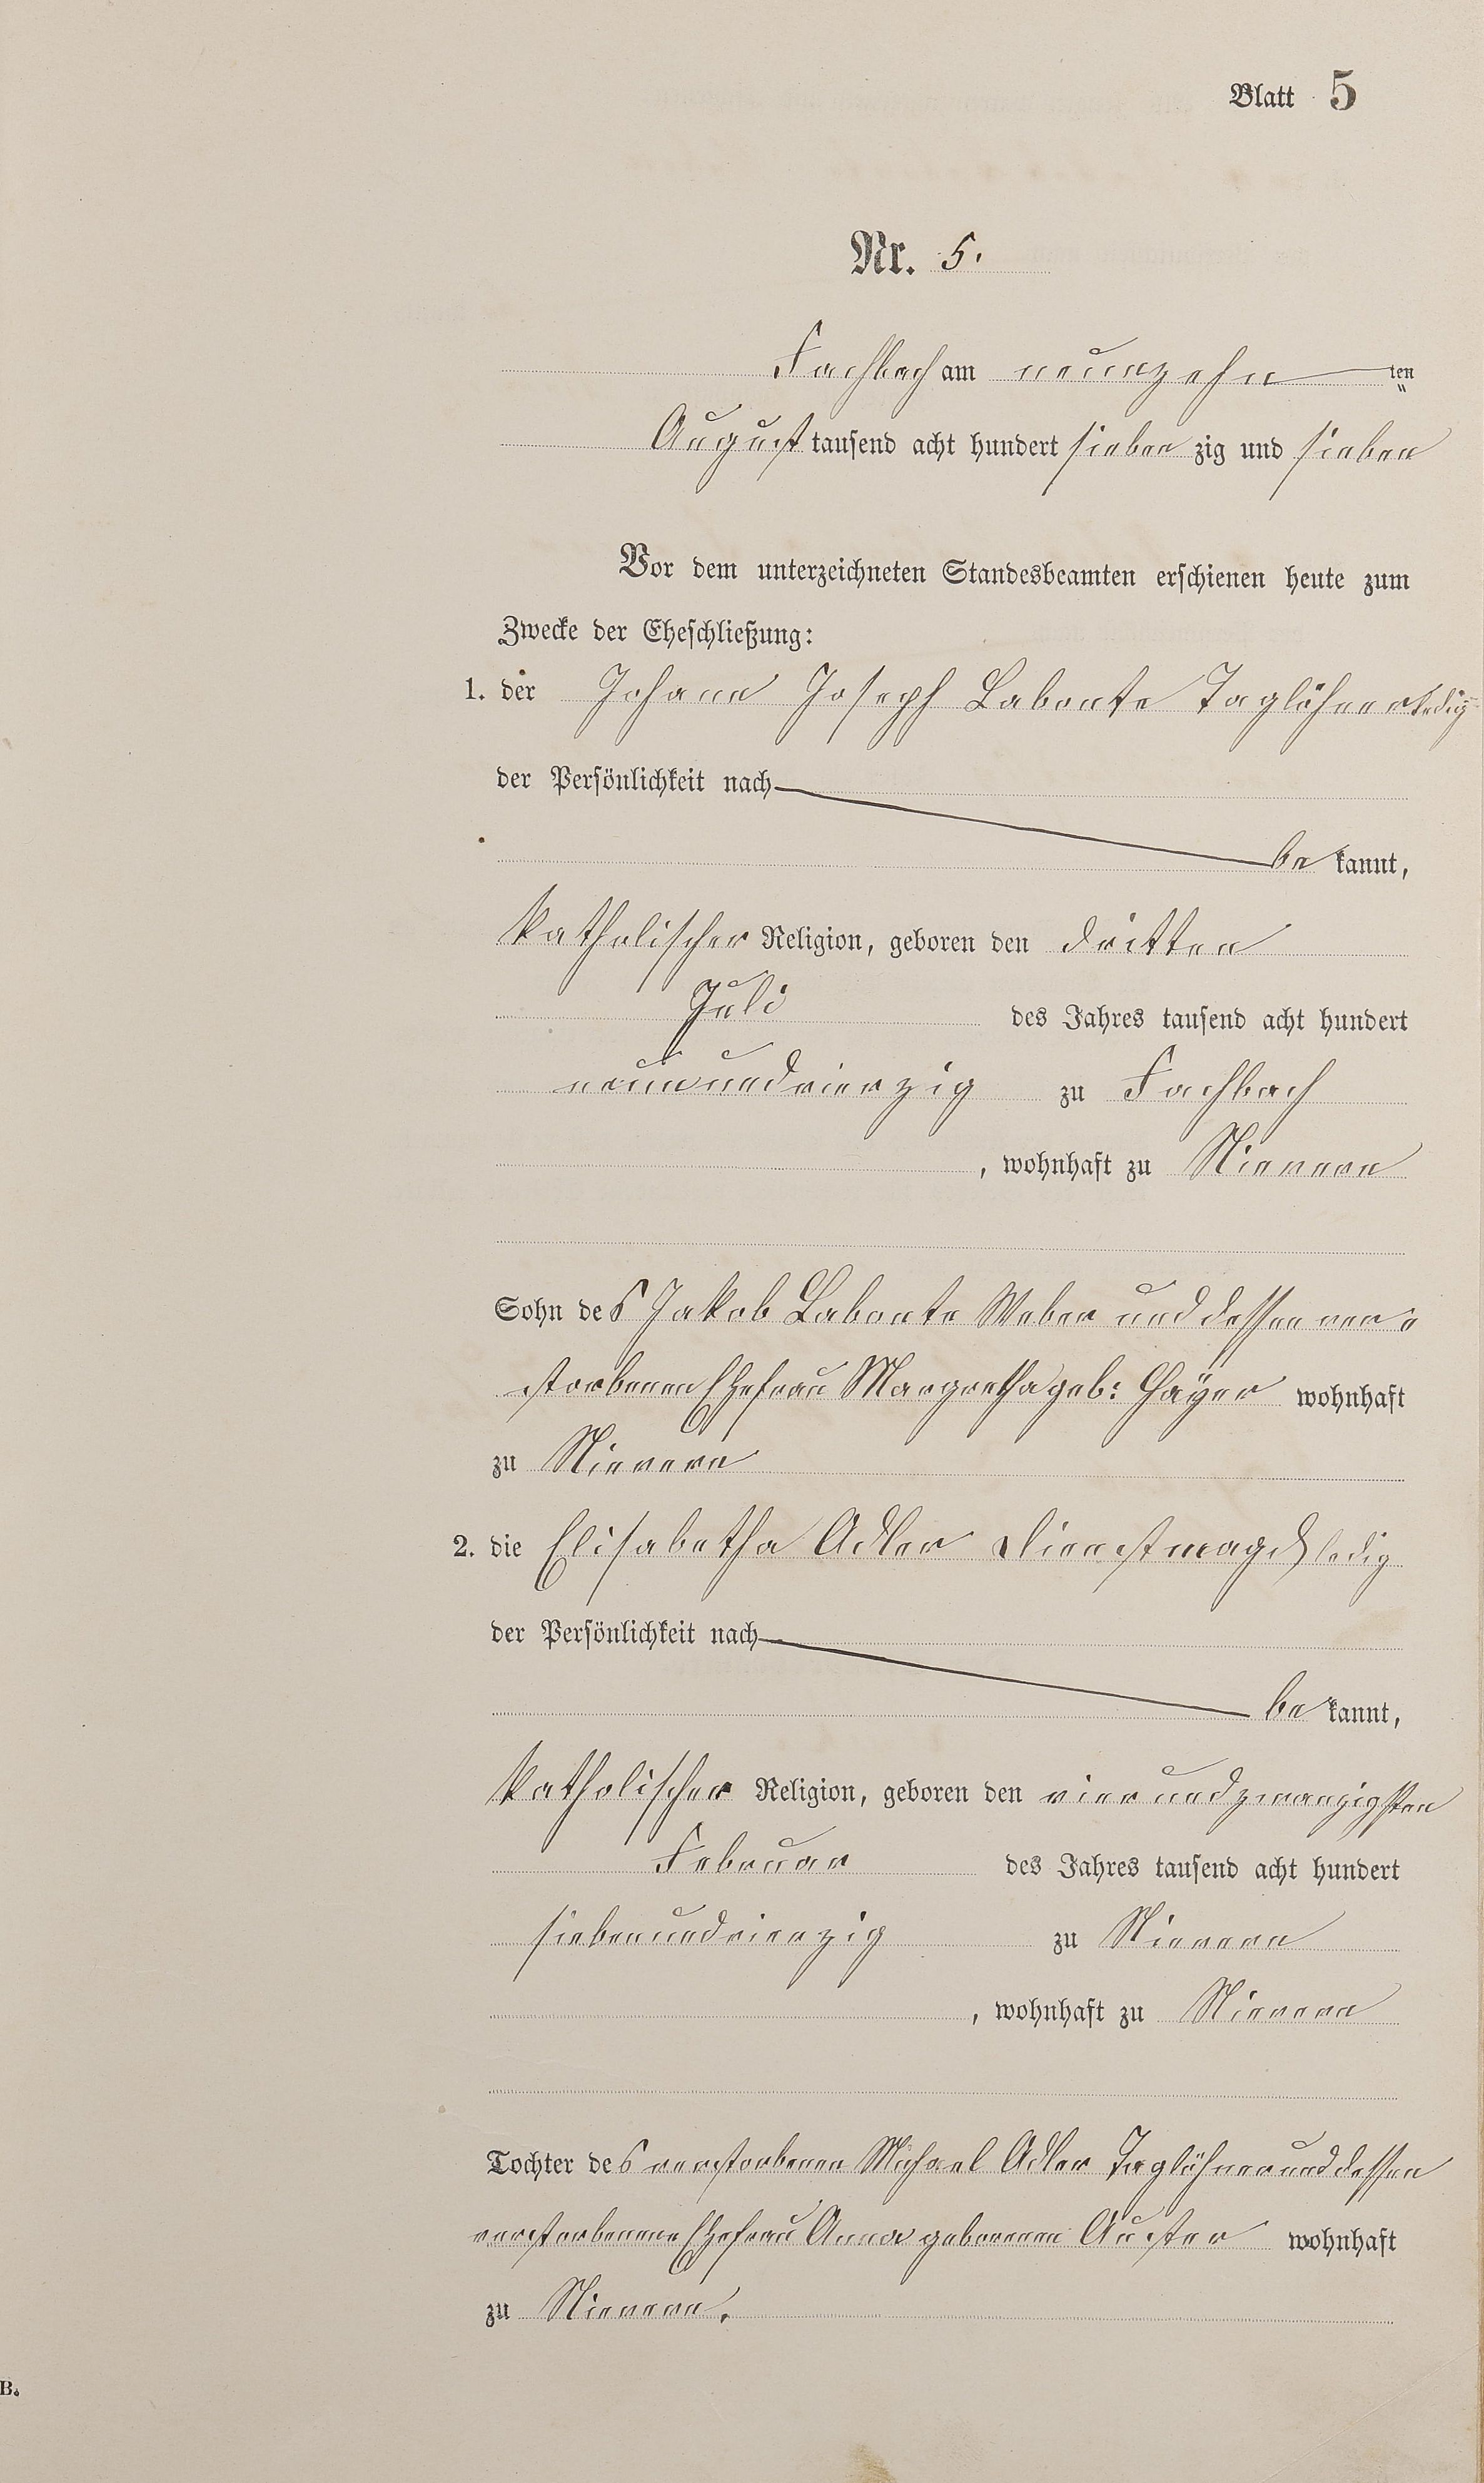 Blatt 5
Nr. 5.
Fachbach am neunzehn ten
August tausend acht hundert sieben zig und sieben
Vor dem unterzeichneten Standesbeamten erschienen heute zum
Zwecke der Eheschließung:
1. der Johann Joseph Labonte Taglöhner ledig
der Persönlichkeit nach
be kannt,
katholischer Religion, geboren den dritten
Juli des Jahres tausend acht hundert
neunundvierzig zu Fachbach
, wohnhaft zu Nievern
Sohn des Jakob Labonte Weber und dessen ver-
storbenen Ehefrau Margretha geb: wohnhaft
zu Nievern
2. die Elisabetha Adler Dienstmagd ledig
der Persönlichkeit nach
be kannt,
katholischer Religion, geboren den vierundzwanzigsten
Februar des Jahres tausend acht hundert
siebenundvierzig zu Nievern
, wohnhaft zu Nievern
Tochter des verstorbenen Michael Adler Taglöhner und dessen
verstorbenene Ehefrau Anna geborenen Auster wohnhaft
zu Nievern.
B.